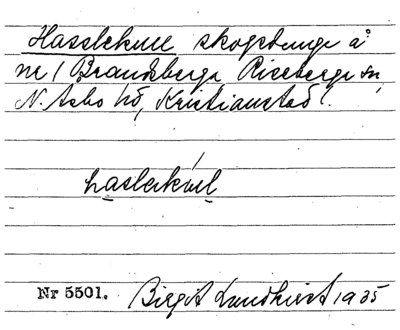 Hasslekull skogsdunge å
nr 1 Brandsberga Riseberga sn,
N. Åsbo hd, Kristianstad l.
haslekúll
Nr 5501. Birgit Lundkvist 1935